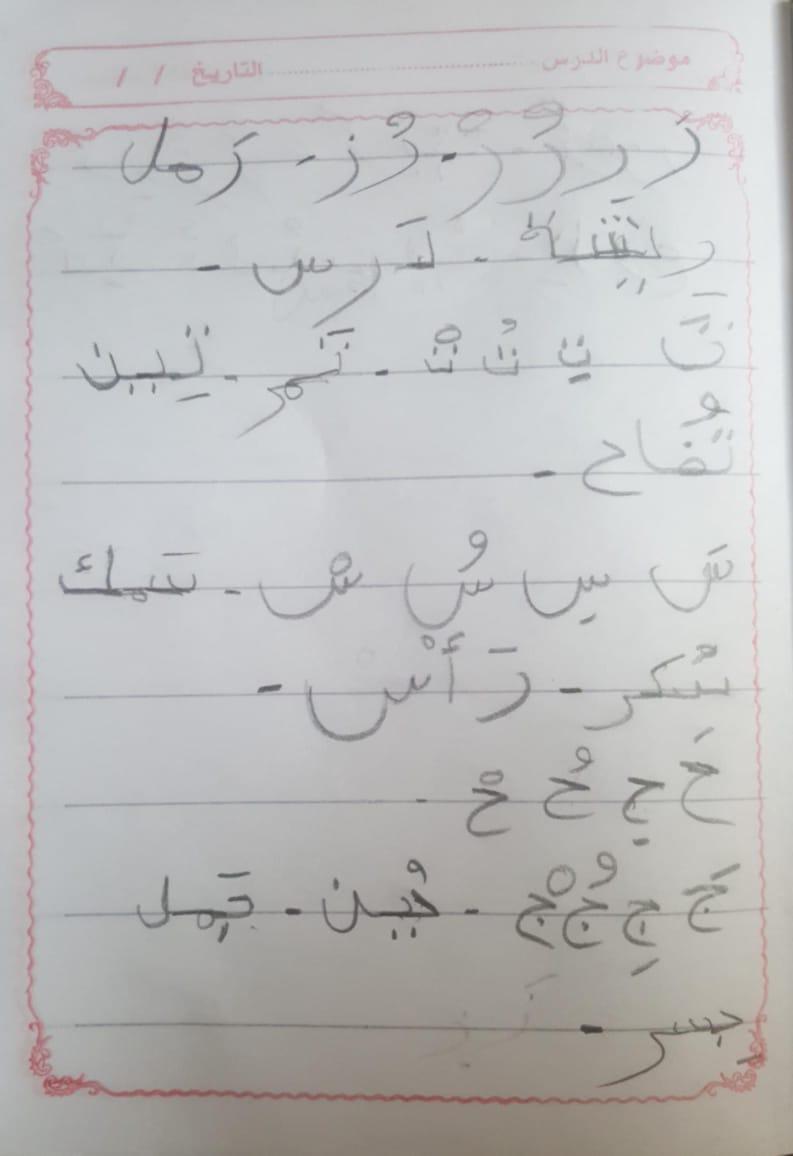 موضوع الدرس ........................ التاريخ / /
رَ رِ رُ رْ - رُز - رَمل
ريشَة - دَرس -
تَ تِ تُ تْ - تَمر - تِين
تُفاح -
سَ سِ سُ سْ - سَمك
سُكر - رَأْس -
حَ حِ حُ حْ -
جَ جِ جُ جْ - جُبن - جَمل
جِسر -